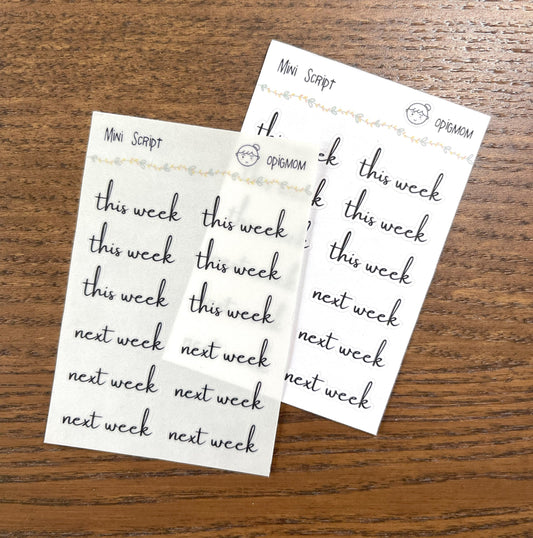 Mini Script
OPIGMOM
this week this week
this week this week
this week this week
next week next week
next week next week
next week next week
Mini Script
OPIGMOM
this week
this week
this week
next week
next week
next week